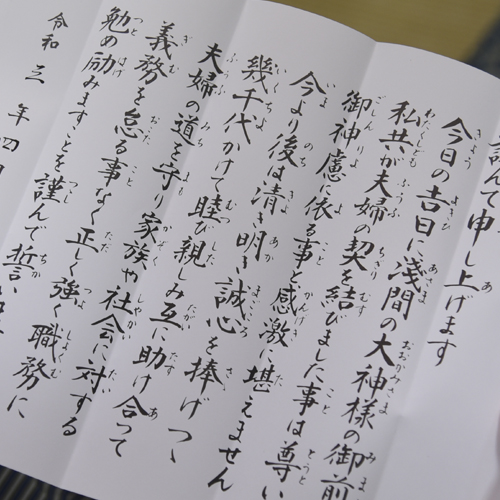 んで申し上げます
今日の吉日に淺間の大神様の御前
私共が夫婦の契を結びました事は尊い
御神慮に依る事と感激に堪えません
今より後は清き明き誠心を捧げつゝ
幾千代かけて睦び親しみ互に助け合って
夫婦の道を守り家族や社会に対する
義務を怠る事なく正しく強く職務に
勉め励みますことを謹んで誓い
令和三年四月